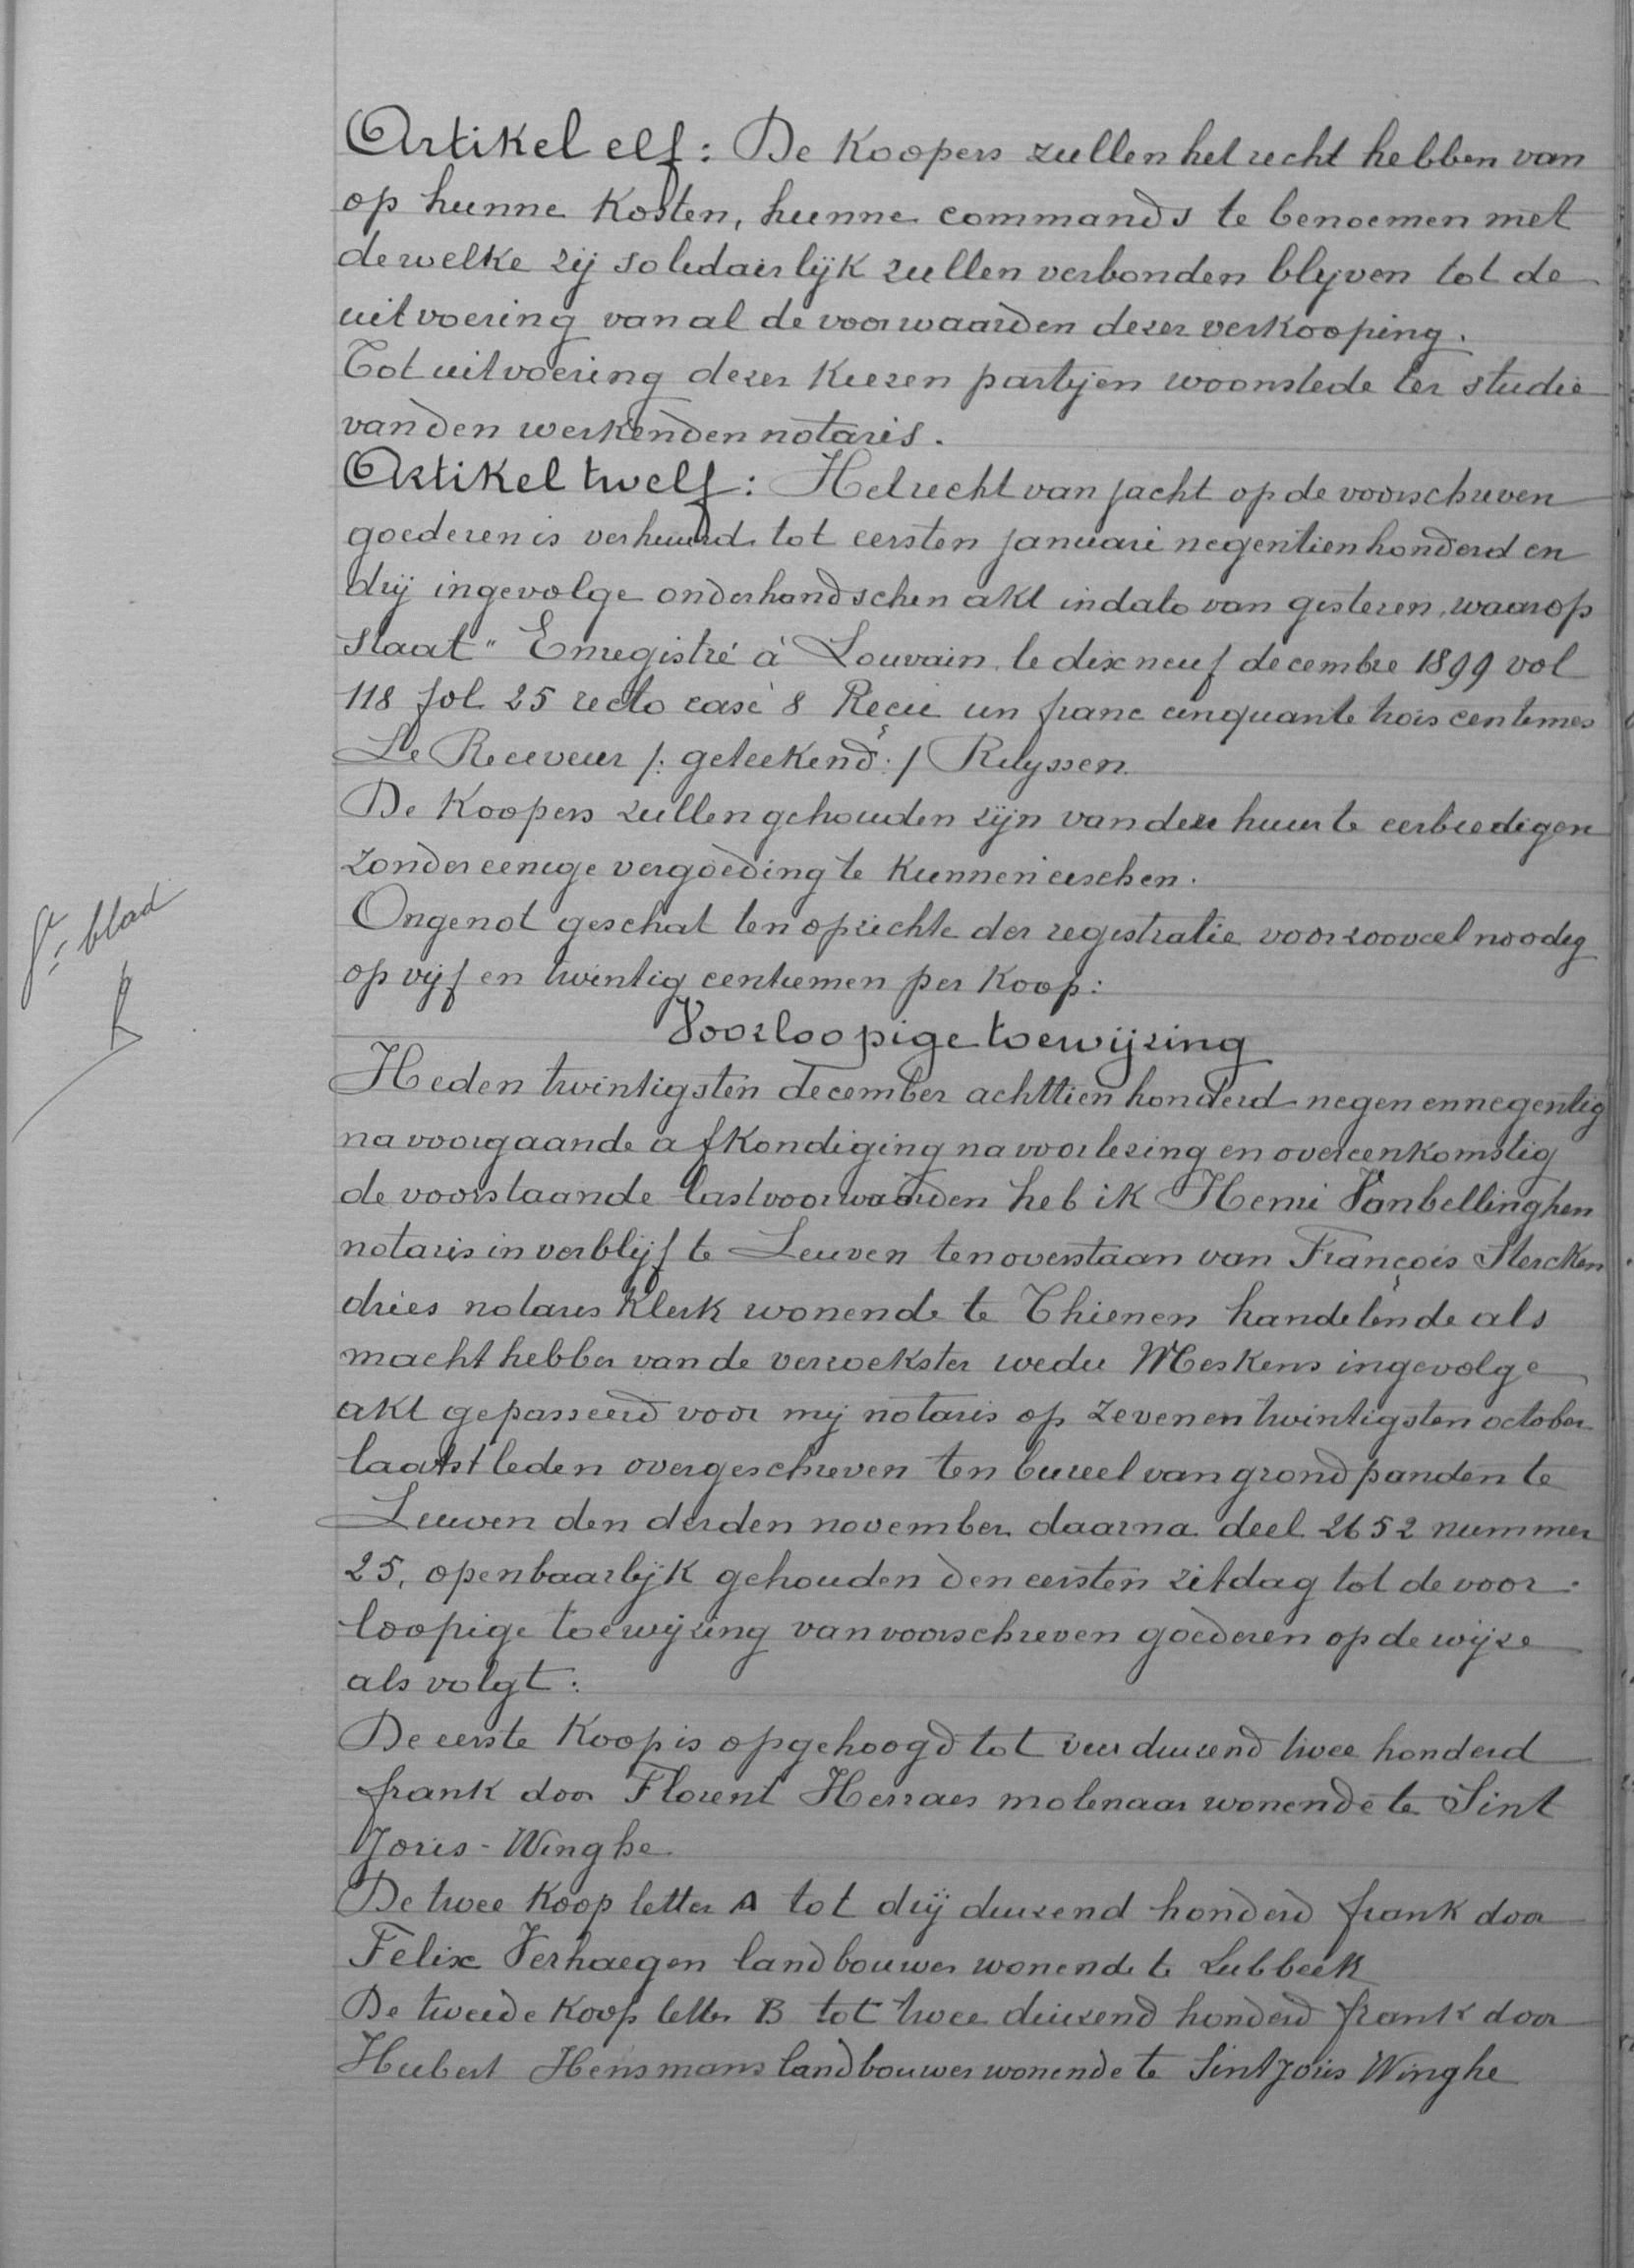 Artikel elf: De Koopers zullen het recht hebben van
op hunne Kosten, hunne commands te benoemen met
dewelke zij solidairlijk zullen verbonden blijven tot de
uitvoering van al de voorwaarden dezer verkooping.
Tot uitvoering dezer kiezen partijen woonstede ter studie
van den werkenden notaris.
Artikel twelf: Het recht van jacht op de voorschreven
goederen is verhuurd tot eersten januari negentienhonderd en
drij ingevolge onderhandschen akt in dato van gisteren, waarop
staat " Enregistré à Louvain le dix neuf decembre 1899 vol
118 fol 25 recto case 8 Reçu un franc cinquante trois centimes
Le Receveur /: geteekend :/ Ruyssen.
De Koopers zullen gehouden zijn van deze huur te eerbiedigen
zonder eenige vergoeding te kunnen eischen.
Ongenot geschat ten opzichte der registratie voor zooveel noodig
op vijf en twintig centiemen per Koop:
Voorloopige toewijzing
8e blad
Heden twintigsten december achttien honderd negen en negentig
na voorgaande afkondiging na voorlezing en overeenkomstig
de voorstaande lastvoorwaarden heb ik Henri Vanbellinghen
notaris in verblijf te Leuven ten overstaan van François Stercken
dries notaris klerk wonende te Thienen handelende als
machthebber van de verzoekster wedu Meskens ingevolge
akt gepasseerd voor mij notaris op zevenentwintigsten october
laatstleden overgeschreven ten bureel van grondpanden te
Leuven den derden november daarna deel 2652 nummer
25, openbaarlijk gehouden den eersten zitdag tot de voor-
loopige toewijzing van voorschreven goederen op de wijze
als volgt:
De eerste Koop is opgehoogd tot vier duizend twee honderd
frank door Florent Herraes molenaar wonende te Sint
Joris-Winghe.
De twee Koop letter A tot drij duizend honderd frank door
Felix Verhaegen landbouwer wonende te Lubbeek
De tweede Koop letter B tot twee duizend honderd frank door
Hubert Hensmans landbouwer wonende te Sint Joris Winghe